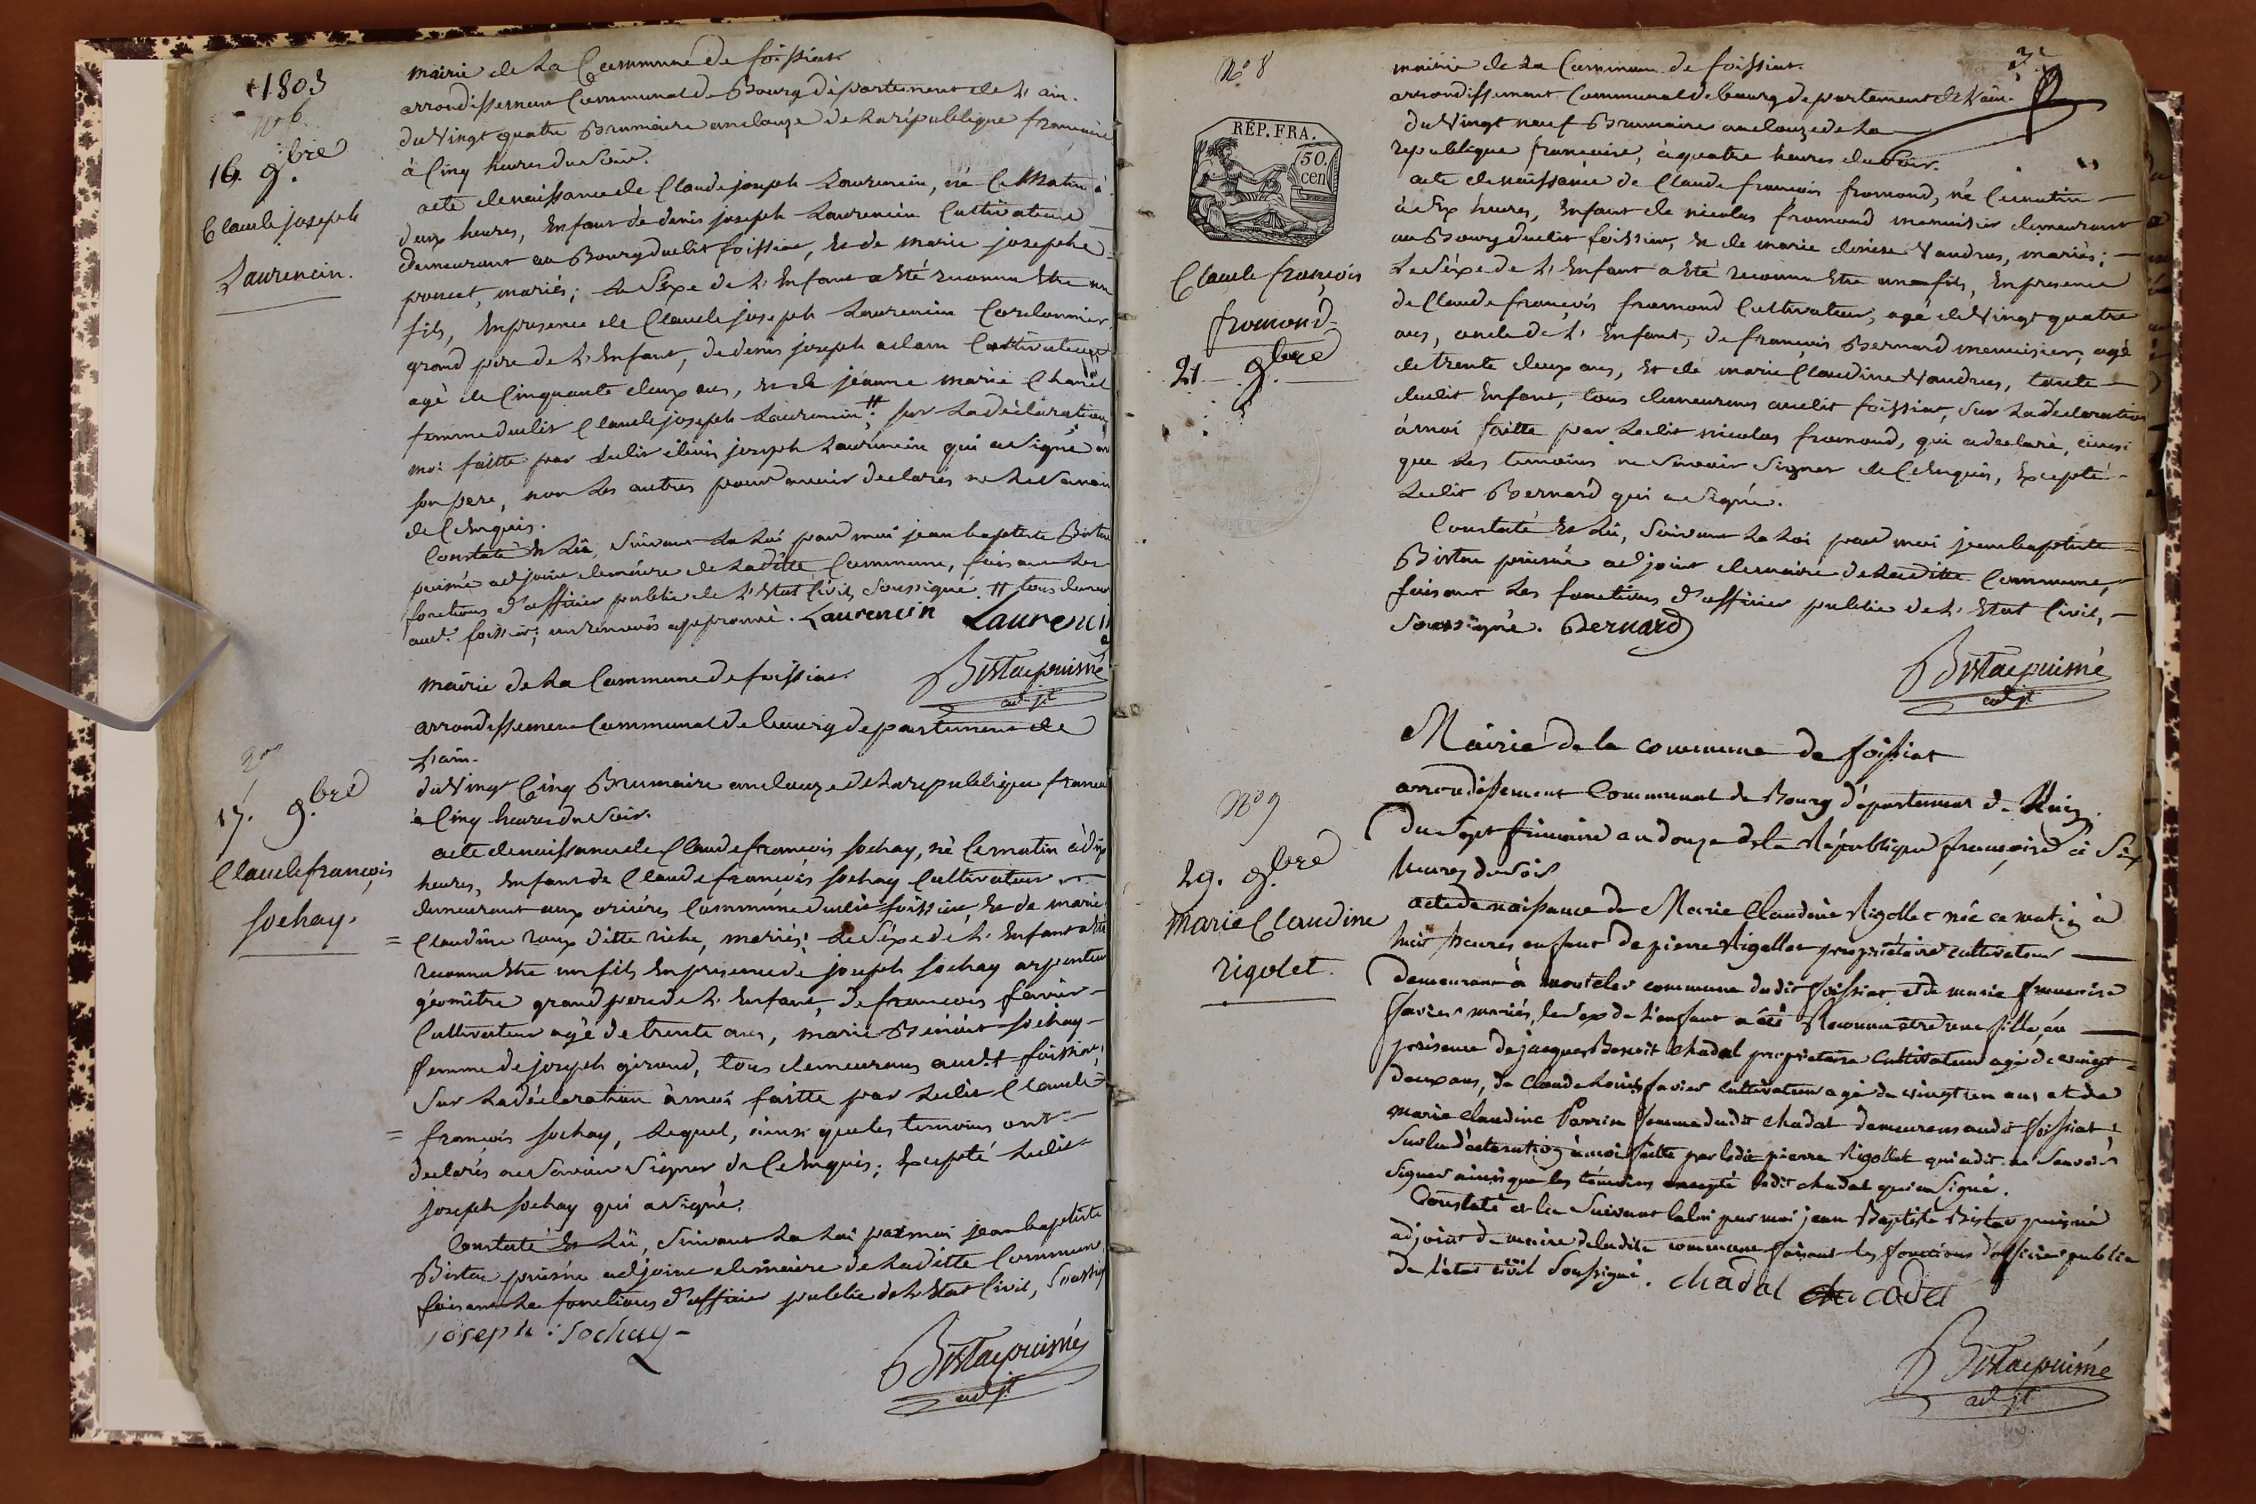 1803
N° 6
16. 9.bre
Claude joseph
Laurencin.
mairie de La Commune de foissiat
arrondissement Communal de Bourg département de L'ain.
du Vingt quatre Brumaire an douze de La république francaise
à Cinq heures du soir.
acte de naissance de Claude joseph Laurencin, né Ce Matin à
deux heures, Enfant de denis joseph Laurencin Cultivateur
demeurant au Bourg dudit foissiat, Et de marie josephe
poncet, mariés; Le Séxe de L'Enfant a Eté reconnu Etre un
fils, En presence de Claude joseph Laurencin Cordonnier,
grand pere de L'Enfant, de denis joseph adam Cultivateur
agé de Cinquante deux ans, et de jéanne marie Chanel
femme dudit Claude joseph Laurencin # ; sur La déclaration à
moi faitte par Ledit denis joseph Laurencin qui a signé avec
son pere, non Les autres pour avoir declarés ne Le Savoir
de Ce Enquis.
Constaté Et Lû, Suivant La Loi par moi jean baptiste Bistac
puisné adjoint de maire de Laditte Commune, faisant Les
fonctions d'officier public de L'Etat Civil, Soussigné. # tous demeurans
aud.t foissiat; un renvois approuvé. Laurencin Laurencin
Bistac puisné
adj.t
17. 9.bre
Claude françois
sochay.
mairie de La Commune de foissiat.
arrondissement Communal de bourg departement de
L'ain.
du Vingt Cinq Brumaire an douze de La republique francaise
à Cinq heures du Soir.
acte de naissance de Claude françois sochay, né Ce matin à dix
heures, Enfant de Claude françois sochay Cultivateur
demeurant aux oriéres Commune dudit foissiat, Et de marie
= Claudine roux ditte riche, mariés; Le Séxe de L'Enfant a Eté
reconnu Etre un fils En presence de joseph sochay arpenteur
géomêtre grand pere de L'Enfant, de francois favier
Cultivateur agé de trente ans, marie Benoit sochay
femme de joseph giraud, tous demeurans aud.t foissiat,
Sur La déclaration à moi faitte par Ledit Claude
= françois sochay, Lequel, ainsi que les temoins ont
declarés ne Savoir Signer de Ce Enquis; Excepté Ledit
joseph sochay qui a signé.
Constaté Et Lû, Suivant La Loi par moi jean baptiste
Bistac puisné adjoint de maire de Laditte Commune,
faisant Les fonctions d'officier public de L'Etat Civil, Soussigné
joseph : sochay
Bistac puisné
adj.t
N° 8
RÉP. FRA.
50.
cen
Claude françois
fromond
21. 9.bre
mairie de La Commune de foissiat.
arrondissement Communal de bourg departement de L'ain.
du Vingt neuf Brumaire an douze de La
republique francaise, à quatre heures du Soir.
acte de naissance de Claude françois fromond, né Ce matin
à dix heures, Enfant de nicolas fromond menuisier demeurant
au Bourg dudit foissiat, Et de marie denise Vaudrus, mariés;
Le Séxe de L'Enfant a Eté reconnu Etre un fils, En presence
de Claude françois fromond Cultivateur, agé de Vingt quatre
ans, oncle de L'Enfant, de françois Bernard menuisier, agé
de trente deux ans, Et de marie Claudine Vaudrus, tante
dudit Enfant, tous demeurans audit foissiat, Sur La declaration
à moi faitte par Ledit nicolas fromond, qui a declaré, ainsi
que Les temoins ne Savoir Signer de Ce Enquis, Excepté
Ledit Bernard qui a Signé.
Constaté Et Lû, Suivant La Loi par moi jean baptiste
Bistac puisné adjoint de maire de Laditte Commune,
faisant Les fonctions d'officier public de L'Etat Civil,
Soussigné. Bernard
Bistac puisné
adj.t
N° 9
29. 9.bre
marie Claudine
rigolet.
Mairie de la commune de foissiat
arrondissement Communal de Bourg département de l'Ain
du Sept frimaire an douze de la République françoise à Six
heures du Soir
acte de naissance de Marie Claudine Rigollet née ce matin à
huit heures enfant de pierre Rigollet propriétaire cultivateur
demeurant à montcler commune dudit foissiat et de marie françoise
favier mariés, le Sexe de l'enfant a été Reconnu etre une fille, en
présence de jacques Benoit Chadal proprietaire Cultivateur agé de vingt
deux ans, de Claude Louis favier cultivateur agé de vingt un ans et de
marie claudine Perrin femme dudit chadal demeurans audit foissiat
Sur la déclaration à moi faitte par ledit pierre Rigollet qui a dit ne Savoir
Signer ainsi que les témoins excepté ledit chadal qui a Signé.
Constaté et lu Suivant la loi par moi jean Baptiste Bistac puisné
adjoint de maire de ladite commune faisant les fonctions d'officier public
de l'état civil Soussigné. chadal cadet
Bistac puisné
adj.t